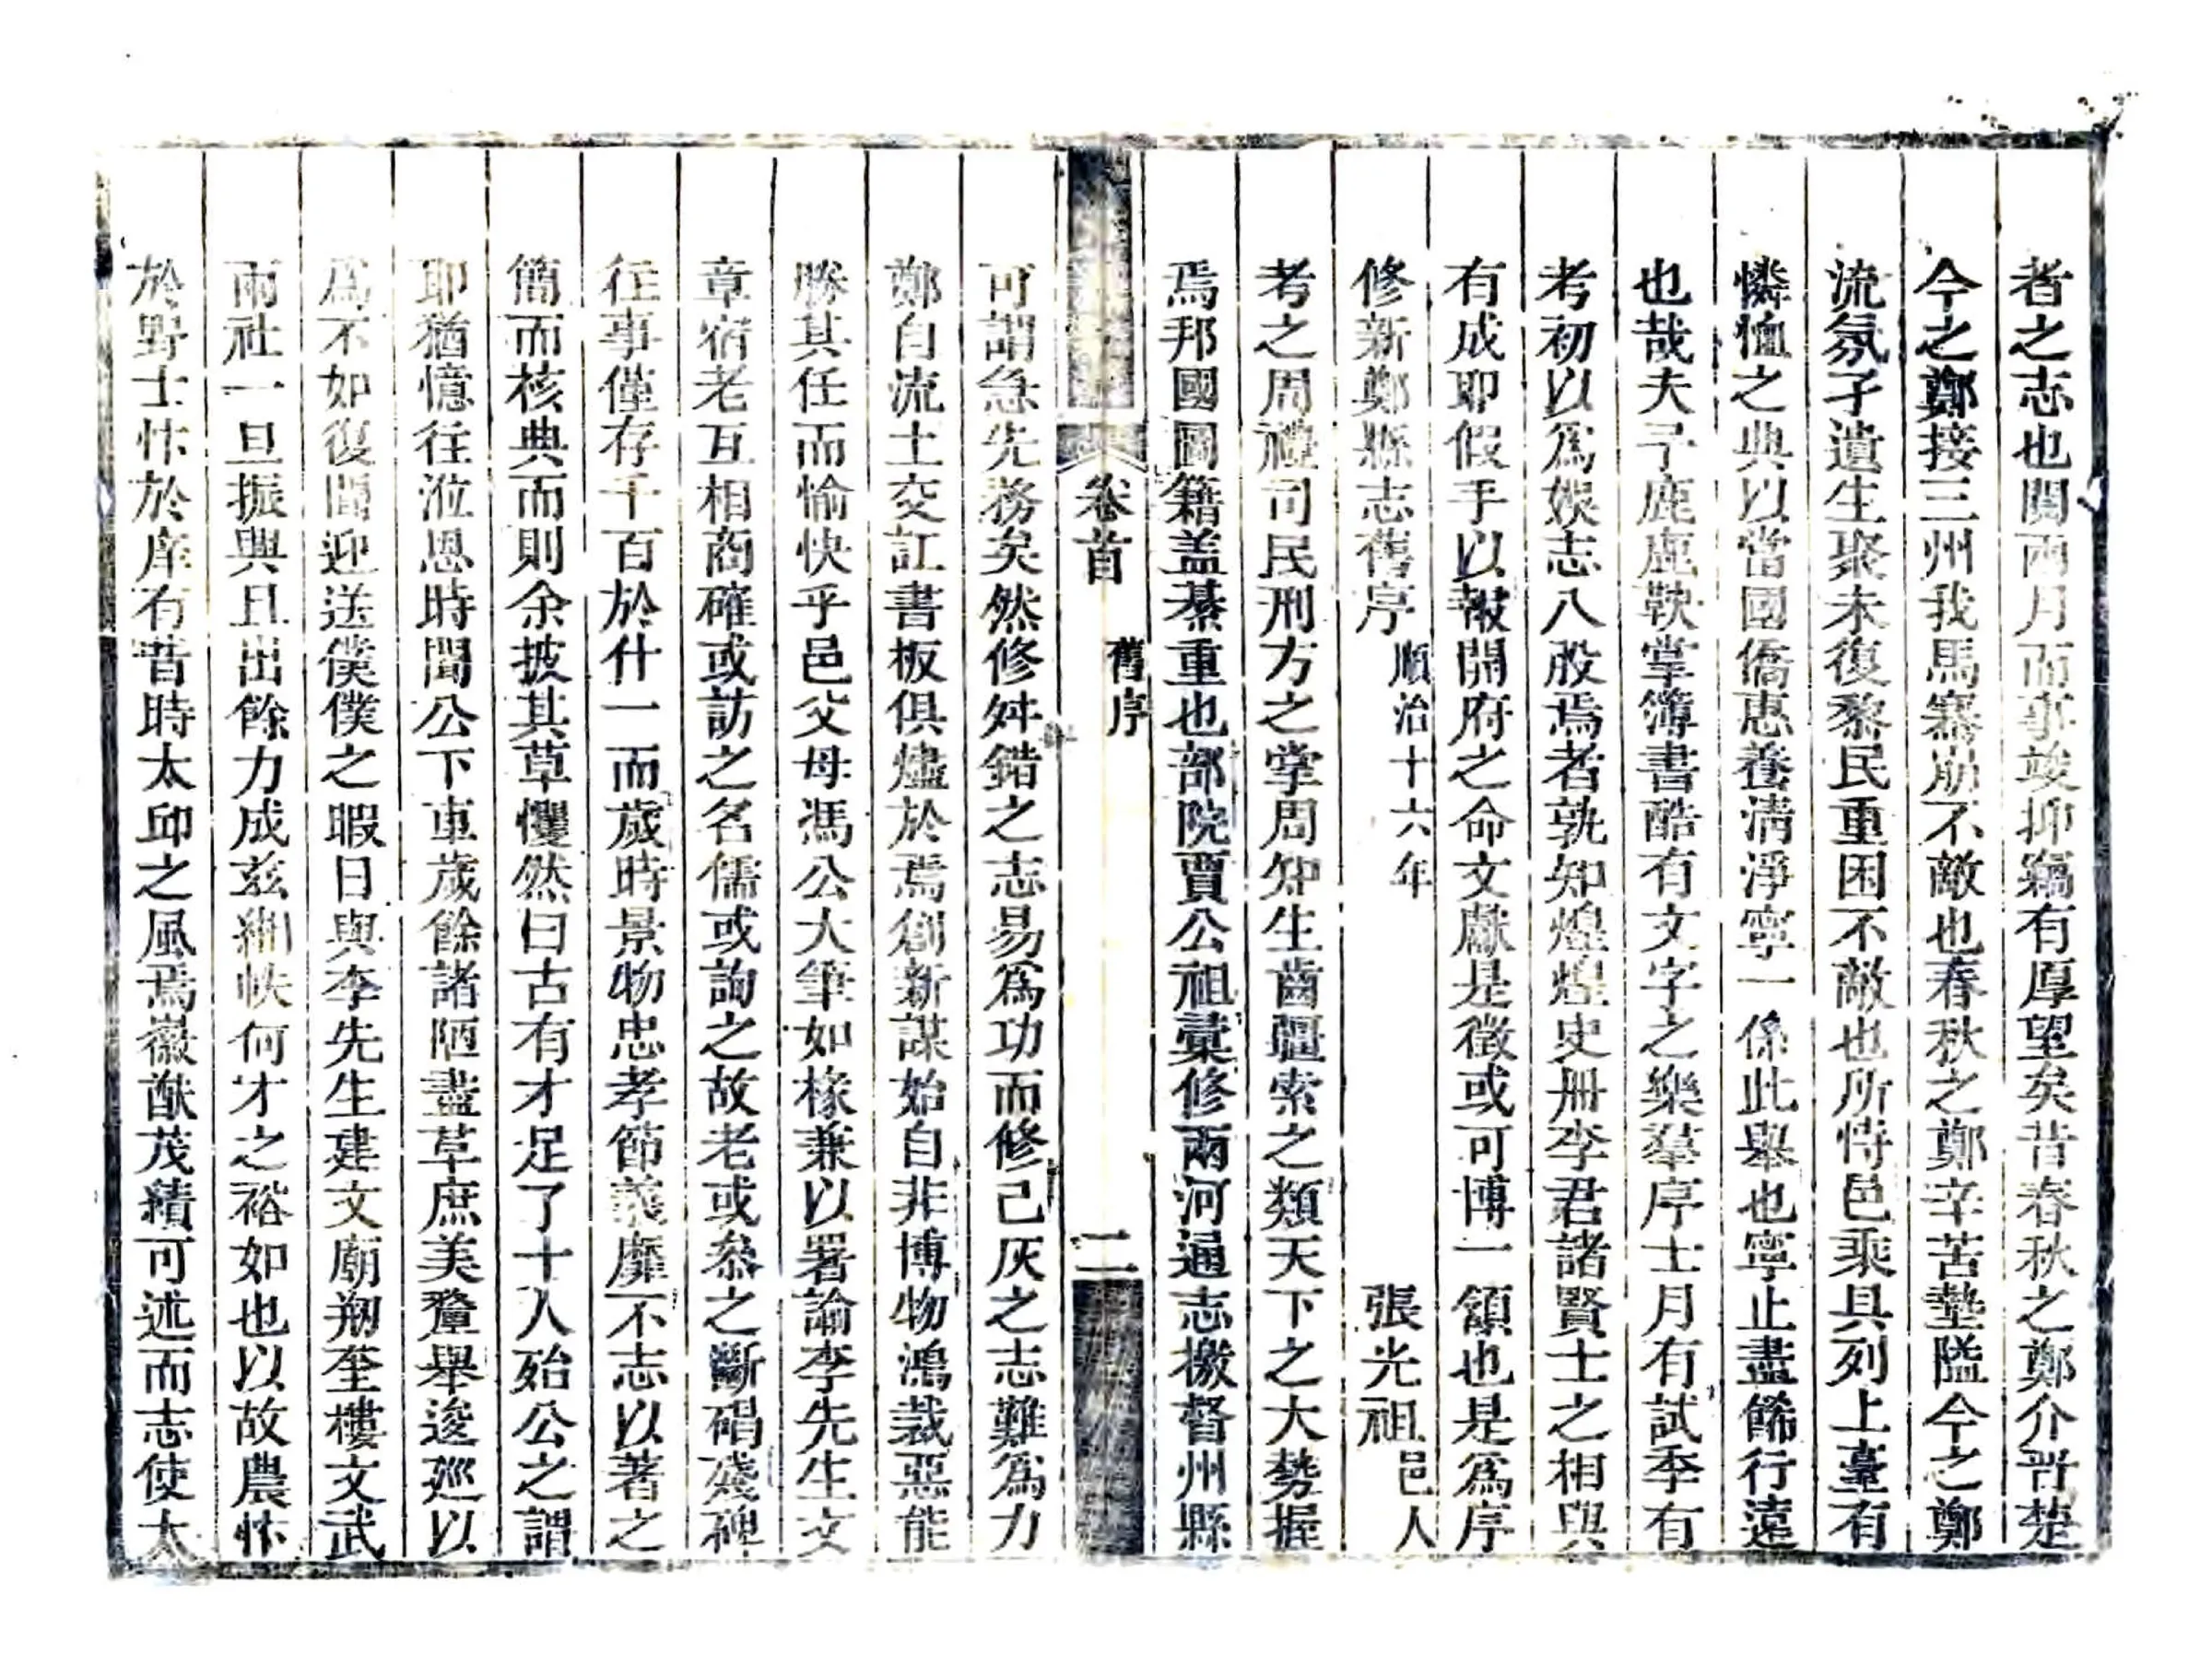 者之志也閱兩月而事竣抑竊有厚望矣昔春秋之鄭介晋楚
今之鄭接三州我馬騫崩不敵也春秋之鄭辛苦墊隘今之鄭
流氛孑遺生聚未復黎民重困不敵也所恃邑乘具列上臺有
憐恤之典以當國僑惠養清淨寧一係此舉也寧止盡餙行遠
也哉夫子鹿鹿鞅掌簿書酷有文字之樂羣序士月有試季有
考初以爲娛志八股焉者孰知煌煌史册李君諸賢士之相與
有成耶假手以報開府之命文獻是徵或可博一頷也是爲序
修新鄭縣志舊序 順治十六年 張光祖 邑人
考之周禮司民刑方之掌周知生齒疆索之類天下之大勢握
焉邦國圖籍盖綦重也部院賈公祖彙修兩河通志檄督州縣
卷首 舊序 二
可謂急先務矣然修舛錯之志易爲功而修已灰之志難爲力
鄭自流土交訌書板俱燼於焉創新謀始自非博物鴻裁惡能
勝其任而愉快乎邑父母馮公大筆如椽兼以署諭李先生文
章宿老互相商確或訪之名儒或詢之故老或叅之斷碣殘碑
往事僅存千百於什一而歲時景物忠孝節義靡不志以著之
簡而核典而則余披其草戄然曰古有才足了十人殆公之謂
耶猶憶往涖恩時聞公下車歲餘諸陋盡革庶美釐舉逡廵以
爲不如復聞迎送僕僕之暇日與李先生建文廟剏奎樓文武
兩社一旦振興且出餘力成玆緗帙何才之裕如也以故農忭
於野士忭於庠有昔時太邱之風焉徽猷茂績可述而志使太